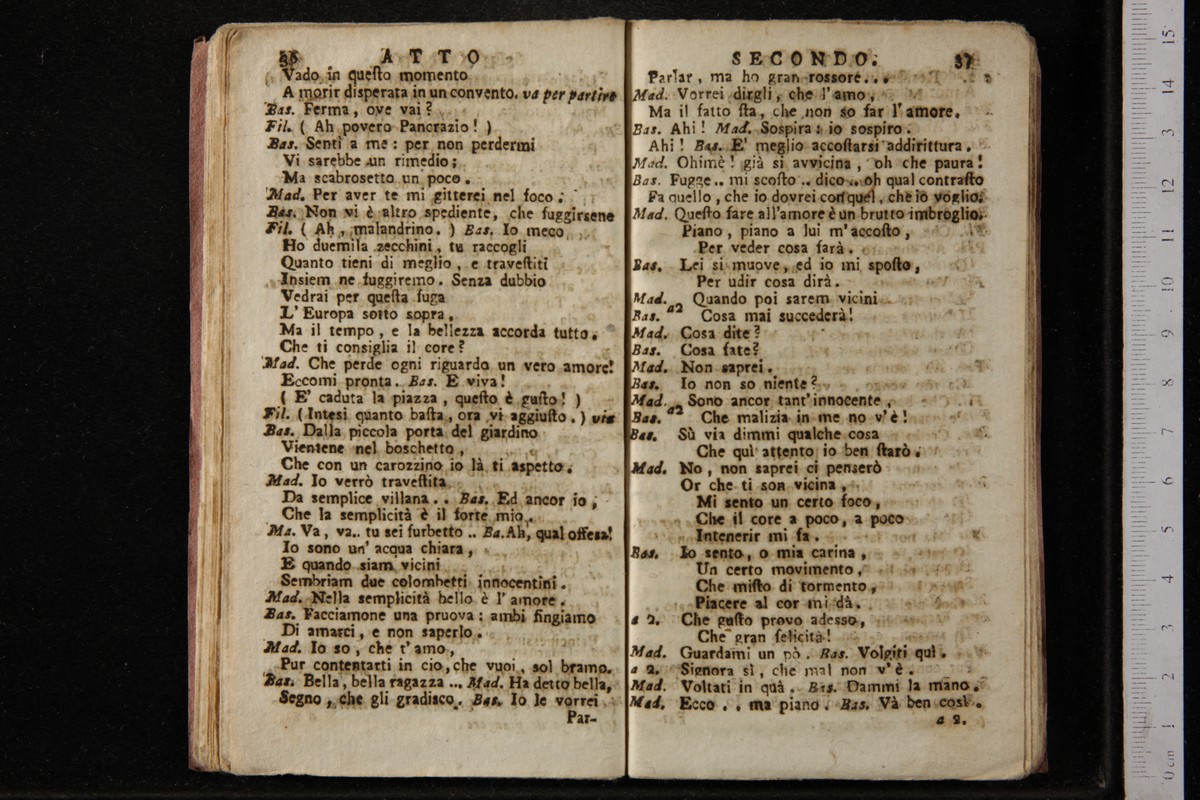 36 ATTO
Vado in queſto momento
A morir diſperata in un convento. va per partire
Bas. Ferma, ove vai?
Fil. ( Ah povero Pancrazio! )
Bas. Senti a me: per non perdermi
Vi sarebbe un rimedio;
Ma scabrosetto un poco.
Mad. Per aver te mi gitterei nel foco;
Bas. Non vi è altro spediente, che fuggirsene
Fil. ( Ah, malandrino. ) Bas. Io meco
Ho duemila zecchini, tu raccogli
Quanto tieni di meglio, e traveſtiti
Insiem ne fuggiremo. Senza dubbio
Vedrai per queſta fuga
L' Europa sotto sopra,
Ma il tempo, e la bellezza accorda tutto.
Che ti consiglia il core?
Mad. Che perde ogni riguardo un vero amore!
Eccomi pronta. Bas. E viva!
( E' caduta la piazza, queſto è guſto! )
Fil. ( Intesi quanto baſta, ora vi aggiuſto. ) via
Bas. Dalla piccola porta del giardino
Vientene nel boschetto,
Che con un carozzino io là ti aspetto.
Mad. Io verrò traveſtita
Da semplice villana.. Bas. Ed ancor io,
Che la semplicità è il forte mio.
Ma. Va, va.. tu sei furbetto.. Ba. Ah, qual offesa!
Io sono un' acqua chiara,
E quando siam vicini
Sembriam due colombetti innocentini.
Mad. Nella semplicità bello è l' amore.
Bas. Facciamone una pruova: ambi fingiamo
Di amarci, e non saperlo.
Mad. Io so, che t' amo,
Pur contentarti in cio, che vuoi, sol bramo.
Bas. Bella, bella ragazza... Mad. Ha detto bella,
Segno, che gli gradisco. Bas. Io le vorrei
Par-
SECONDO. 37
Parlar, ma ho gran rossore...
Mad. Vorrei dirgli, che l' amo,
Ma il fatto ſta, che non so far l' amore.
Bas. Ahi! Mad. Sospira: io sospiro.
Ahi! Bas. E' meglio accoſtarsi addirittura.
Mad. Ohimè! già si avvicina, oh che paura!
Bas. Fugge.. mi scoſto.. dico.. oh qual contraſto
Fa quello, che io dovrei con quel, che io voglio.
Mad. Queſto fare all'amore è un brutto imbroglio.
Piano, piano a lui m' accoſto,
Per veder cosa farà.
Bas. Lei si muove, ed io mi spoſto,
Per udir cosa dirà.
Mad. Quando poi sarem vicini
Bas. a2 Cosa mai succederà!
Mad. Cosa dite?
Bas. Cosa fate?
Mad. Non saprei.
Bas. Io non so niente?
Mad. Sono ancor tant' innocente,
Bas. a2 Che malizia in me no v' è!
Bas. Sù via dimmi qualche cosa
Che quì attento io ben ſtarò.
Mad. No, non saprei ci penserò
Or che ti son vicina,
Mi sento un certo foco,
Che il core a poco, a poco
Intenerir mi fa.
Bas. Io sento, o mia carina,
Un certo movimento,
Che miſto di tormento,
Piacere al cor mi dà.
a 2. Che guſto provo adesso,
Che gran felicità!
Mad. Guardami un pò. Bas. Volgiti quì.
a 2. Signora sì, che mal non v' è.
Mad. Voltati in quà. Bas. Dammi la mano.
Mad. Ecco.. ma piano. Bas. Và ben così.
a 2.